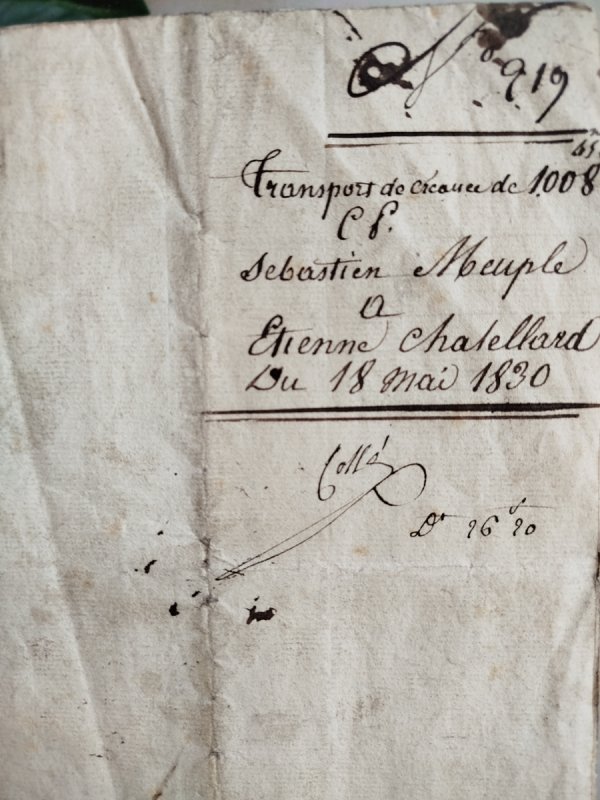 No 919
Transport de créance de 1008
Sebastien Meuple
a
Etienne Chatellard
Du 18 Mai 1830
Collé
Dt 26 20